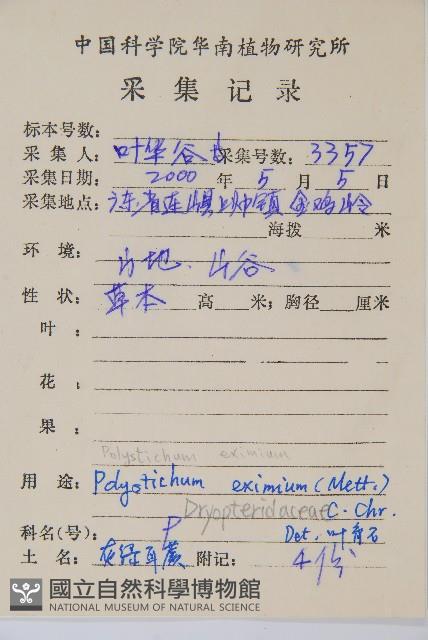 中国科学院华南植物研究所
采 集 记 录
标本号数:
采 集 人: 叶华谷 采集号数: 3357
采集日期: 2000 年 5 月 5 日
采集地点: 广东省连县上帅镇 金鸡岭
海拨 米
环 境: 山地、山谷
性 状: 草本 高 米; 胸径 厘米
叶 :
花 :
果 :
Polystichum eximium
用 途: Polystichum eximium (Mett.)
Dryopteridaceae C. Chr.
科名(号): P Det. 叶育石
土 名: 灰绿耳蕨 附记: 4份
國立自然科學博物館
NATIONAL MUSEUM OF NATURAL SCIENCE